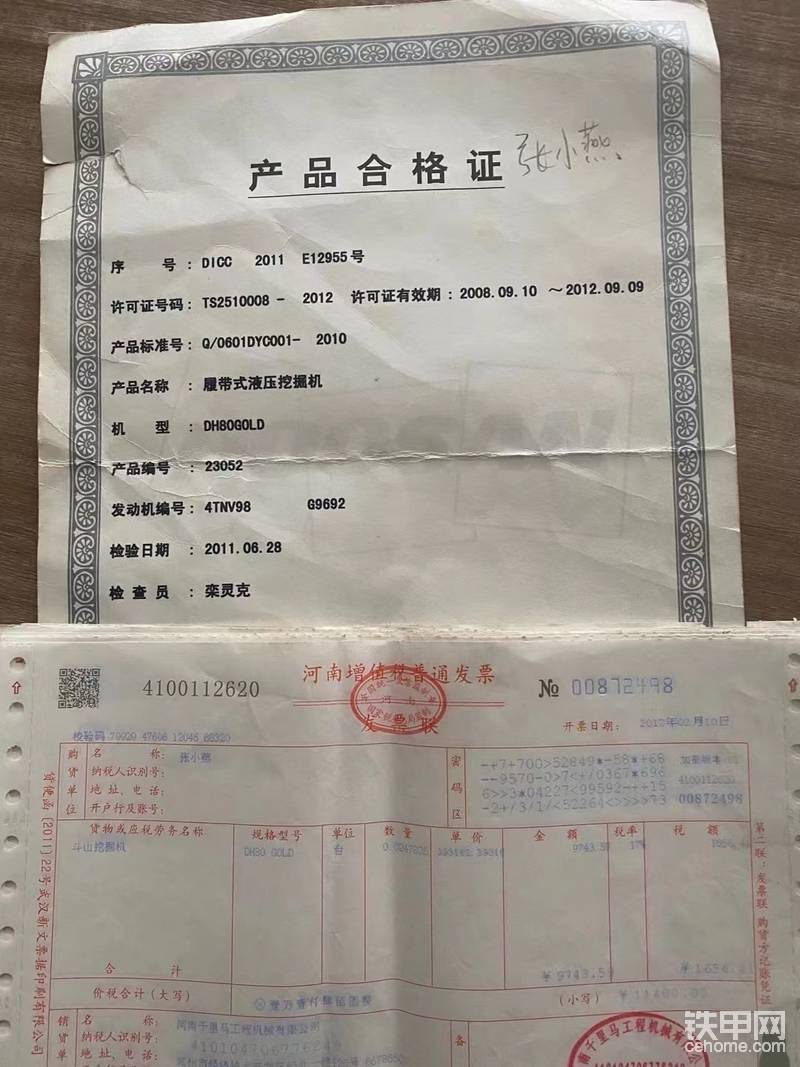 产品合格证 张小燕
序 号：DICC 2011 E12955号
许可证号码：TS2510008 - 2012 许可证有效期：2008.09.10 ～2012.09.09
产品标准号：Q/0601DYC001- 2010
产品名称 ：履带式液压挖掘机
机 型 ：DH80GOLD
产品编号 ：23052
发动机编号：4TNV98 G9692
检验日期 ：2011.06.28
检查员 ：栾灵克
河南增值税普通发票
4100112620
№ 00872498
发票联
开票日期： 2012年02月10日
校验码
购货单位
名 称： 张小燕
纳税人识别号：
地址、电话：
开户行及账号：
密码区
-+7+700>52849*-58*+68
--9570-0>7<+/0367*696
6>>3*04227<99592-++15
-2+/3/1/<52264<>>>>>73
加密版本:01
4100112620
00872498
货物或应税劳务名称 规格型号 单位 数量 单价 金额 税率 税额
斗山挖掘机 DH80 GOLD 台 9743.59 17% 1656.41
合 计 ￥9743.59 ￥1656.41
价税合计（大写） ⊗壹万壹仟肆佰圆整 （小写） ￥11400.00
销货单
名 称： 河南千里马工程机械有限公司
纳税人识别号： 410104706776249
地址、电话：
备
第二联：发票联 购货方记账凭证
铁甲网
cehome.com